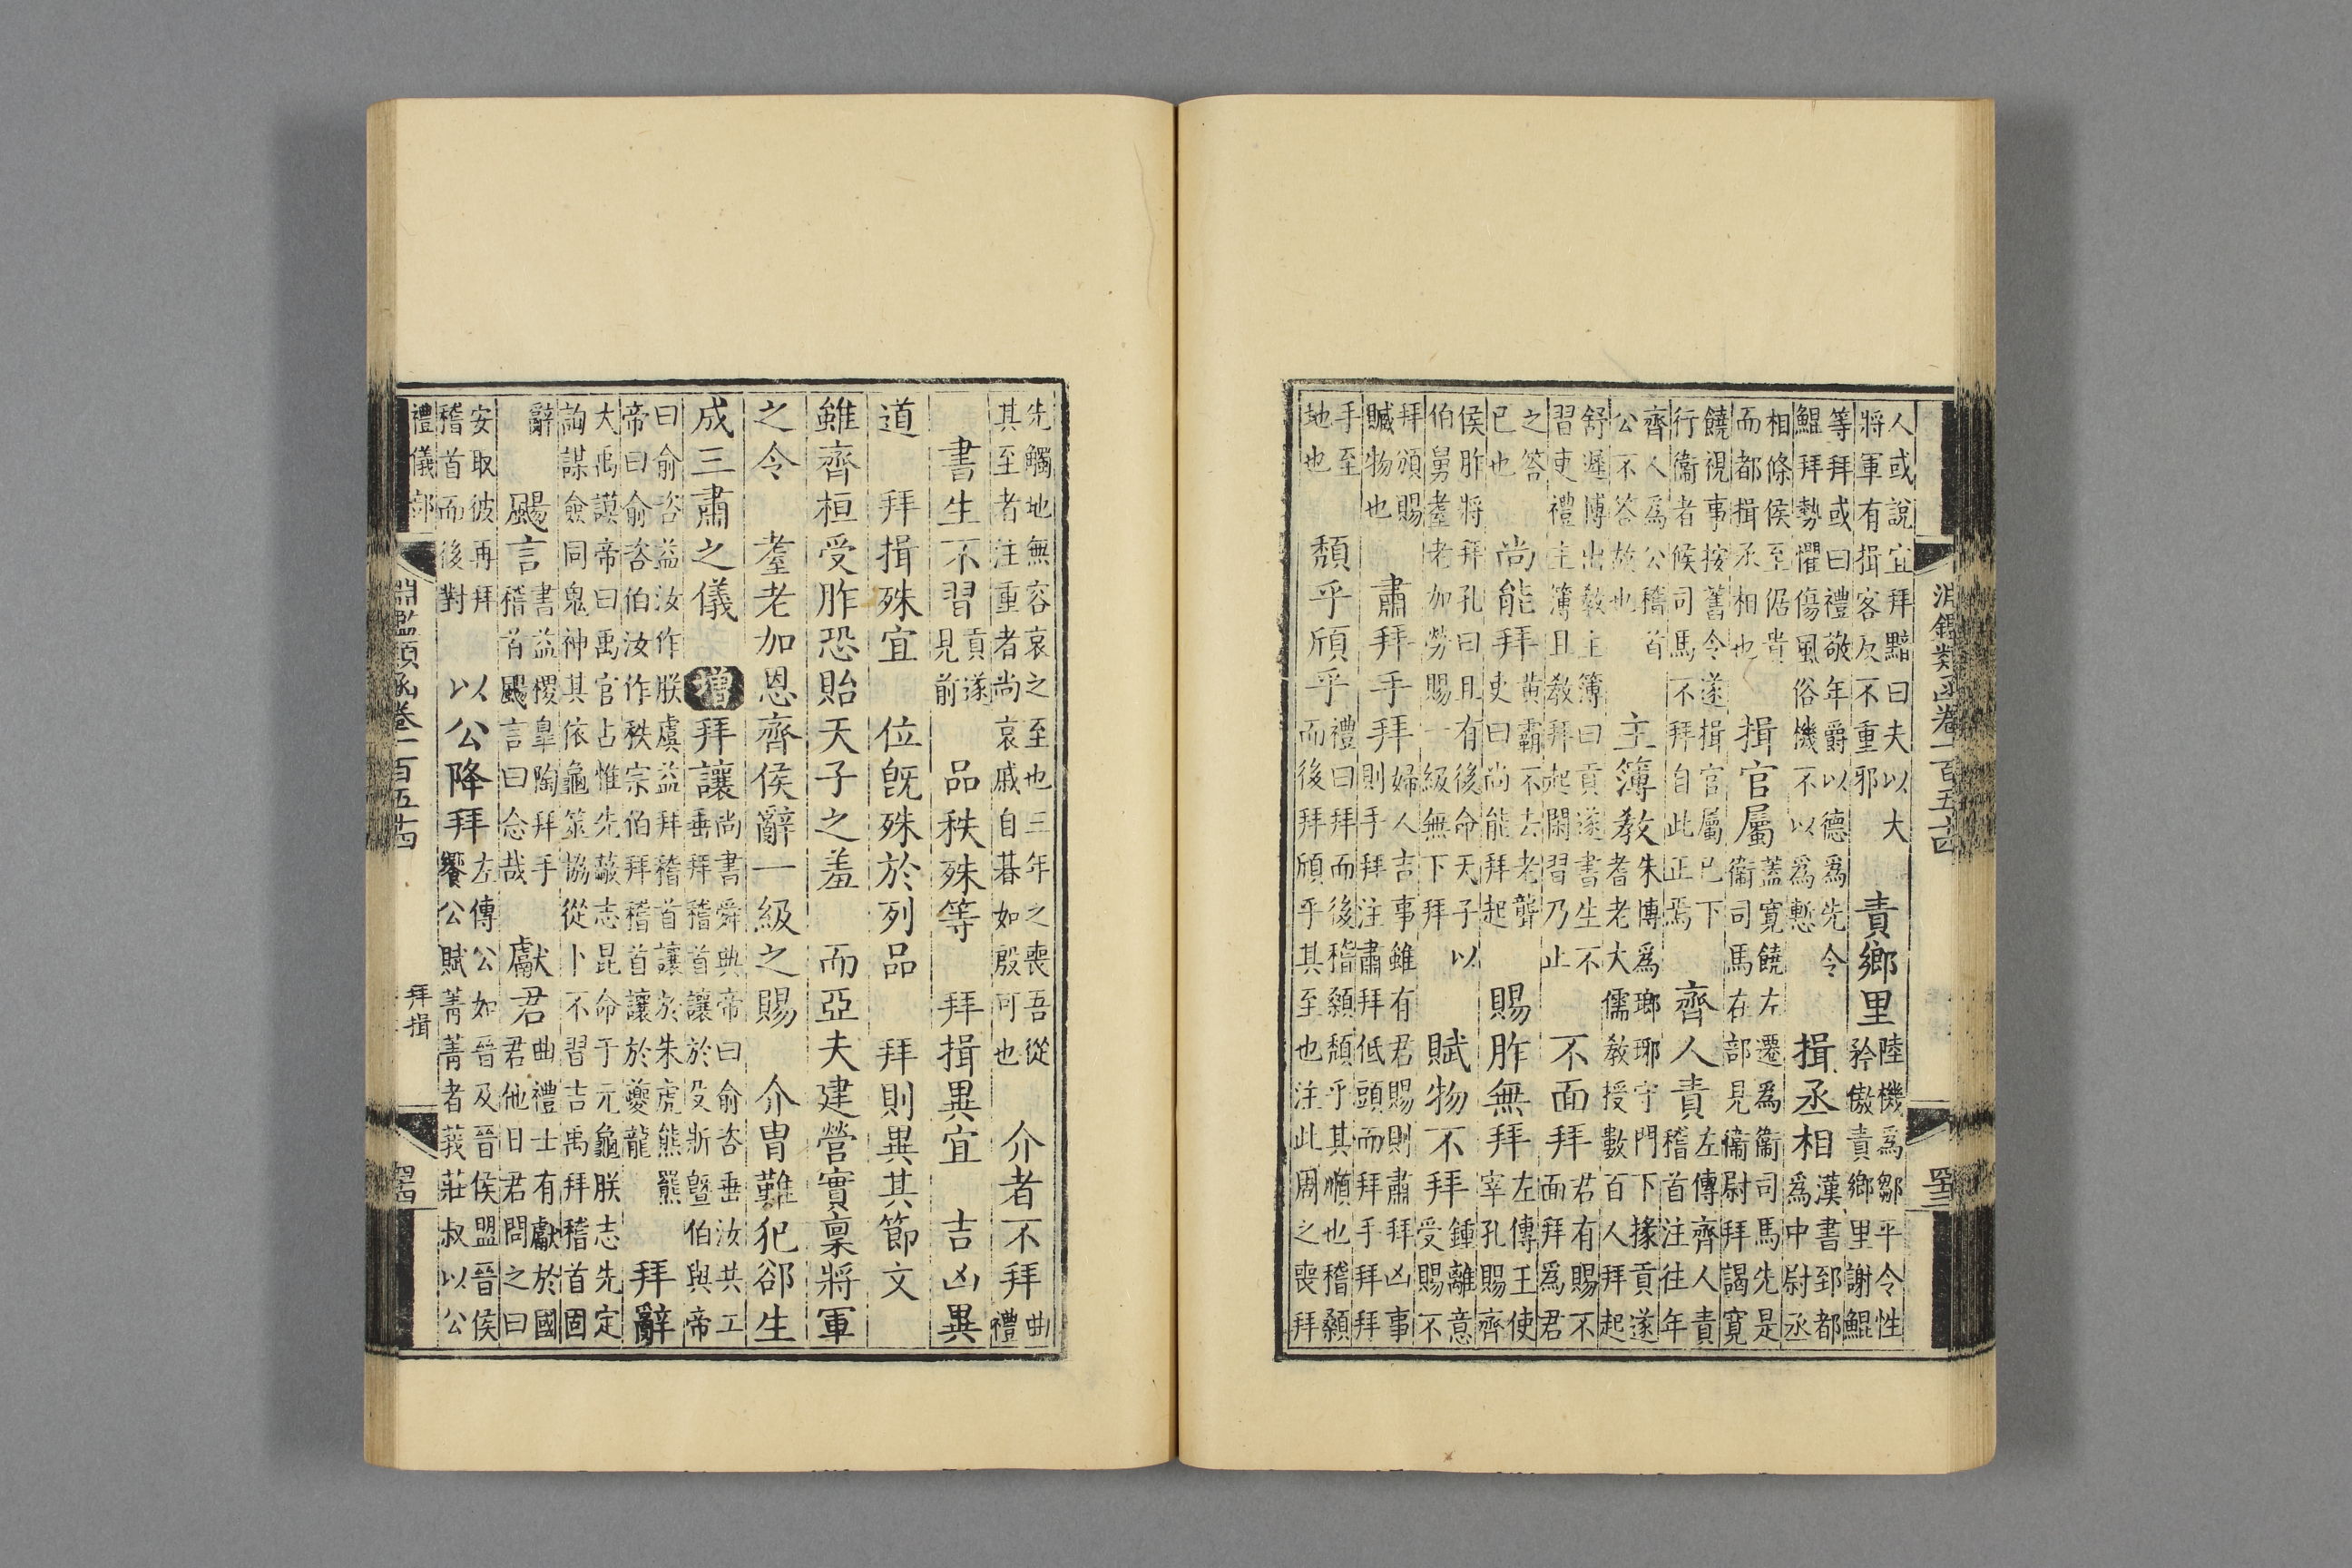 淵鑑類函卷一百五十四
四十三
人或說宜拜黯曰夫以大
將軍有揖客反不重邪
責鄉里
陸機為鄒平令性
矜傲責鄉里謝鯤
等拜或曰禮敬年爵以德為先令
鯤拜勢懼傷風俗機不以為慙
揖丞相
漢書郅都
為中尉丞
相條侯至倨貴
而都揖丞相也
揖官屬
蓋寬饒左遷為衞司馬先是
衞司馬在部見衞尉拜謁寬
饒視事按舊令遂揖官屬已下
行衞者候司馬不拜自此正焉
齊人責
左傳齊人責
稽首注往年
齊人為公稽首
公不答故也
主簿教
朱博為瑯琊守門下掾貢遂
耆老大儒教授數百人拜起
舒遲博出敎主簿曰貢遂書生不
習吏禮主簿且敎拜起閑習乃止
不面拜
君有賜不
面拜為君
之答
已也
尚能拜
黄霸不去老聾
吏曰尚能拜起
賜胙無拜
左傳王使
宰孔賜齊
侯胙將拜孔曰且有後命天子以
伯舅耋老加勞賜一級無下拜
賦物不拜
鍾離意
受賜不
拜頒賜
贓物也
肅拜手拜
婦人吉事雖有君賜則肅拜凶事
則手拜注肅拜低頭而拜手拜拜
手至
地也
頹乎頎乎
禮曰拜而後稽顙頹乎其順也稽顙
而後拜頎乎其至也注此周之喪拜
先觸地無容哀之至也三年之喪吾從
其至者注重者尚哀戚自朞如殷可也
介者不拜
曲
禮
書生不習
貢遂
見前
品秩殊等　拜揖異宜　吉凶異
道　拜揖殊宜　位旣殊於列品　拜則異其節文
雖齊桓受胙恐貽天子之羞　而亞夫建營實稟將軍
之令　耋老加恩齊侯辭一級之賜　介冑難犯郤生
成三肅之儀　增　拜讓
尚書舜典帝曰俞咨垂汝共工
垂拜稽首讓於殳斨曁伯與帝
曰俞咨益汝作朕虞益拜稽首讓於朱虎熊羆
帝曰俞咨伯汝作秩宗伯拜稽首讓於夔龍
拜辭
大禹謨帝曰禹官占惟先蔽志昆命于元龜朕志先定
詢謀僉同鬼神其依龜筮協從卜不習吉禹拜稽首固
辭
颺言
書益稷皐陶拜手
稽首颺言曰念哉
獻君
曲禮士有獻於國
君君他日君問之曰
安取彼再拜
稽首而後對
以公降拜
左傳公如晉及晉侯盟晉侯
饗公賦菁菁者莪莊叔以公
禮儀部
淵鑑類函卷一百五十四
拜揖
四十四